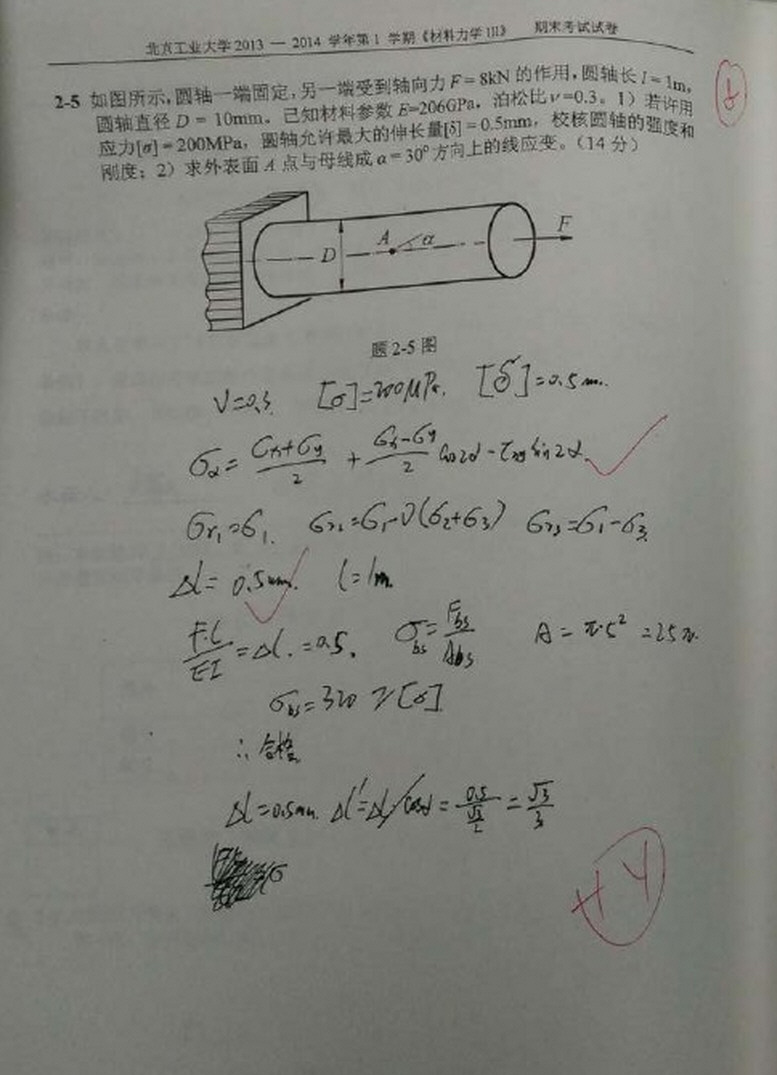 北京工业大学2013 — 2014 学年第1 学期《材料力学 III》 期末考试试卷
2-5 如图所示,圆轴一端固定,另一端受到轴向力F = 8kN 的作用,圆轴长 l = 1m,
圆轴直径 D = 10mm。已知材料参数 E=206GPa,泊松比ν=0.3。1）若许用
应力[σ] = 200MPa，圆轴允许最大的伸长量[δ] = 0.5mm，校核圆轴的强度和
刚度；2）求外表面 A 点与母线成 α = 30° 方向上的线应变。（14 分）
D A α F
题 2-5 图
ν=0.3 [σ]=200MPa. [δ]=0.5mm.
σα = (σx+σy)/2 + (σx-σy)/2 cos2α - τxy sin2α
σr1=σ1. σr2=σ1-ν(σ2+σ3) σr3=σ1-σ3.
Δl= 0.5mm. l=1m.
F·L/EI = Δl. =0.5. σbs = Fbs/Abs A = π·5² =25π.
σbs=320 [σ]
∴合格
Δl=0.5mm. Δl'=Δl/cosα = 0.5/(√3/2) = √3/3
+4